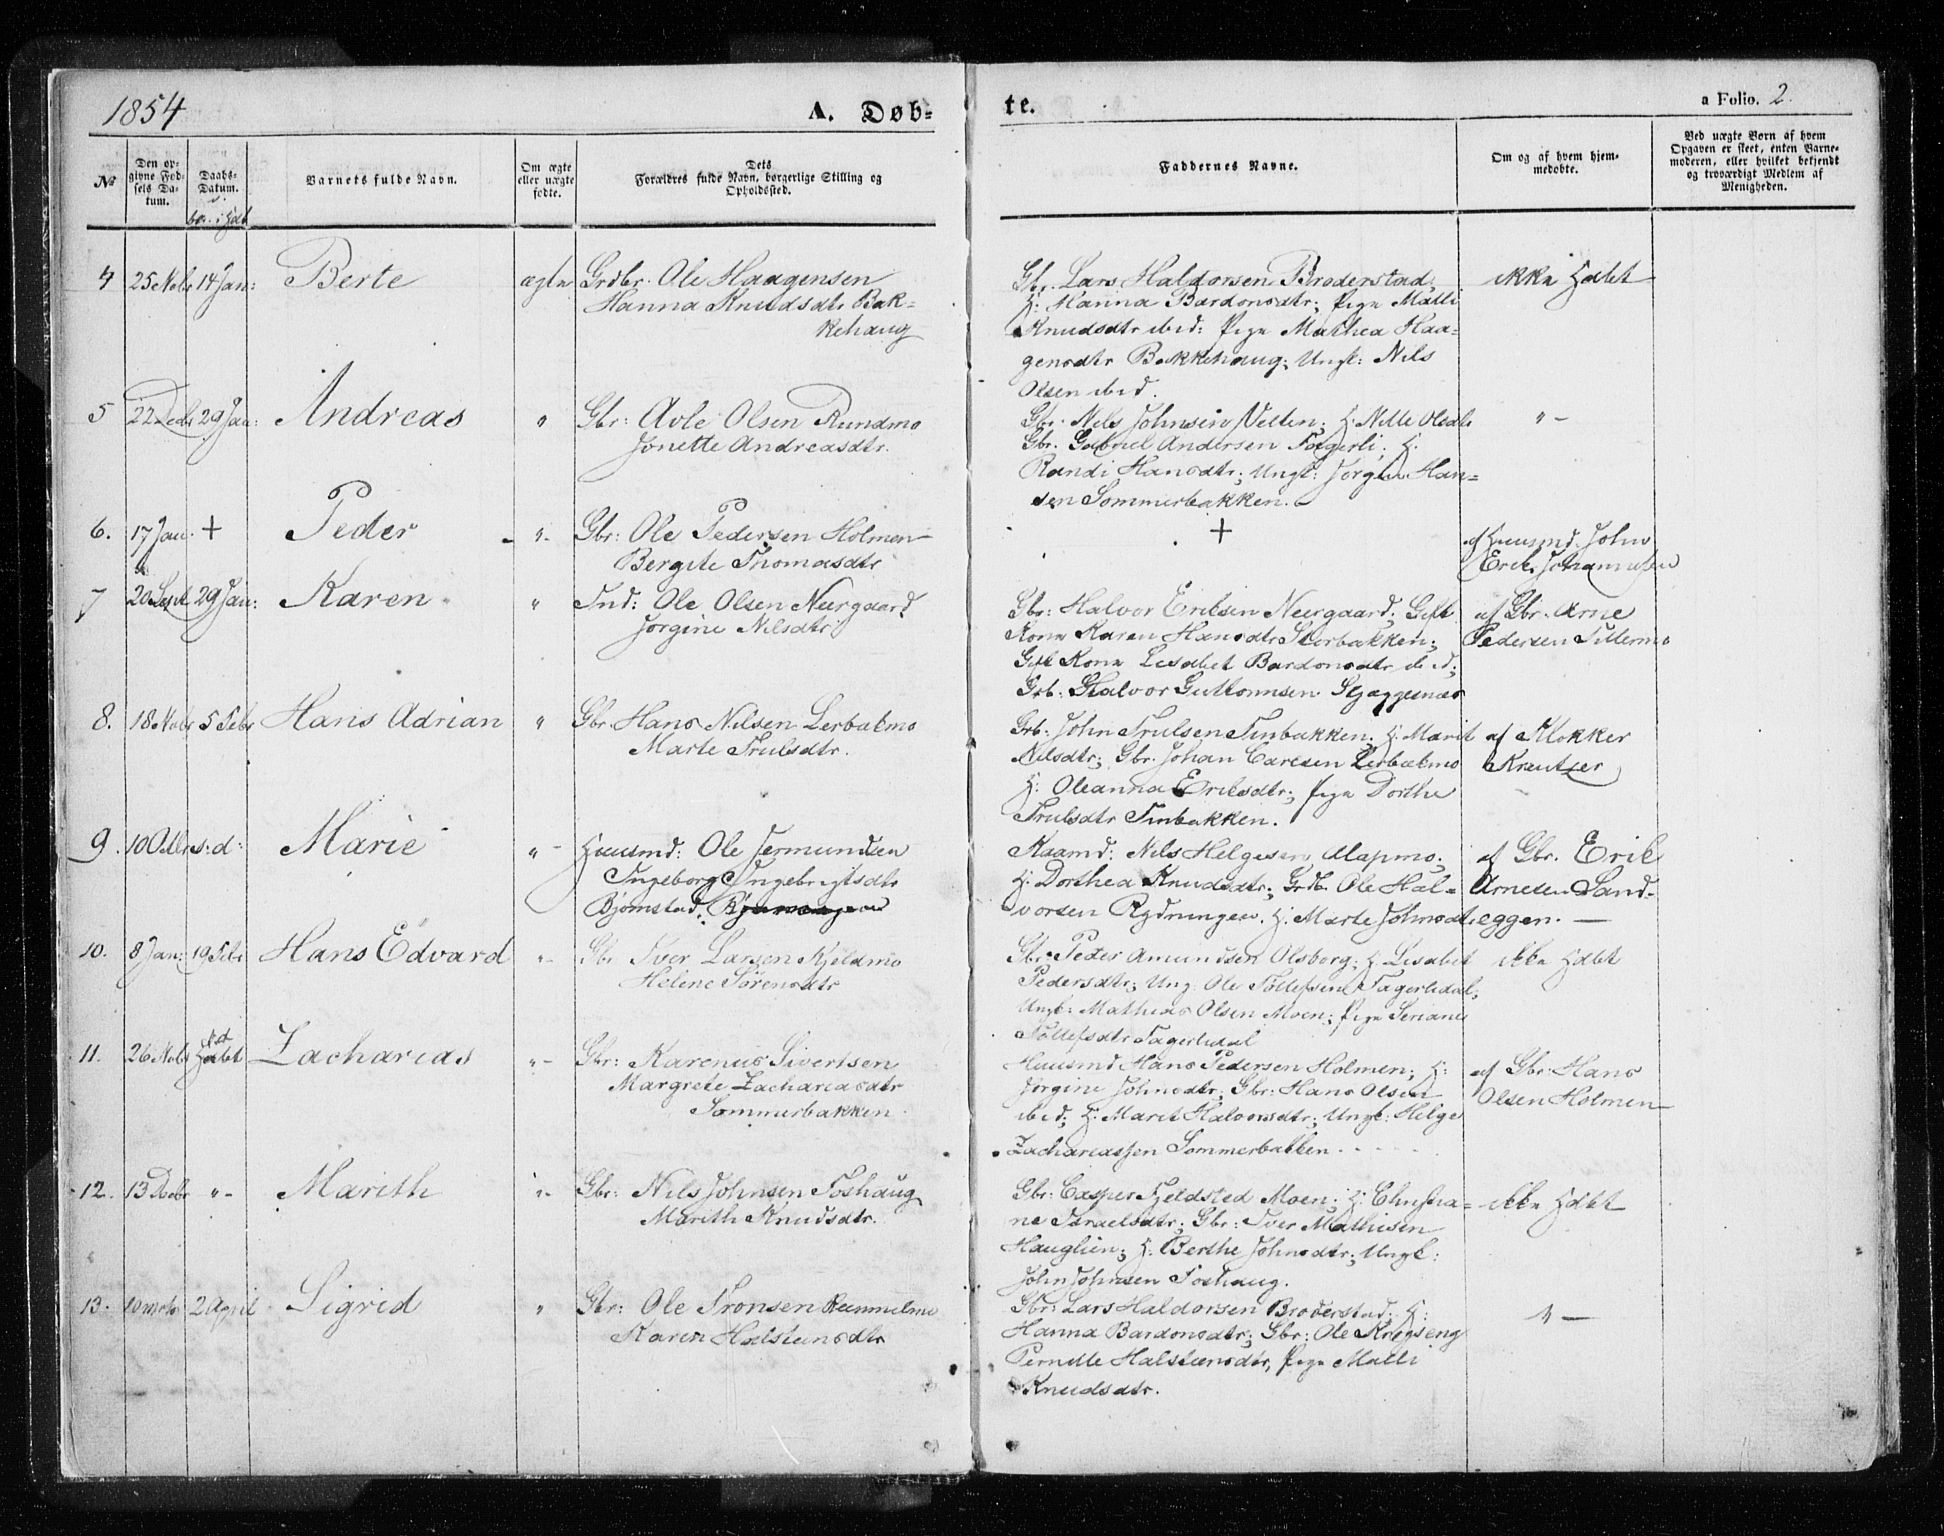 1854
A. Døb-
te.
a Folio. 2.
No
Den op-
givne Fød-
sels Da-
tum.
Daabs-
Datum.
Barnets fulde Navn.
Om ægte
eller uægte
fødte.
Dets
Forældres fulde Navn, borgerlige Stilling og
Opholdssted.
Faddernes Navne.
Om og af hvem hjem-
medøbte.
Ved uægte Børn af hvem
Opgaven er skeet, enten Barne-
moderen, eller hvilket bekjendt
og troværdigt Medlem af
Menigheden.
4 25 Nobr 14 Jan: Berte ægte Grdbr. Ole Haagensen
Hanna Knudsdtr Bak-
kehaug
Gbr. Lars Haldorsen Broderstad,
H. Hanna Bardonsdtr; Pige Malli
Knudsdtr ibid: Pige Mathea Haa-
gensdtr Bakkehaug; Ungk: Nils
Olsen ibid.
ikke Hdbt
5 22 Decbr 29 Jan: Andreas " Gbr: Avle Olsen Rundmo
Jonette Andreasdtr.
Gbr. Nils Johnsen Velten; H. Nille Olsdtr
Gbr. Gabriel Andersen Fagerli; H.
Randi Hansdtr; Ungk: Jørgen Han-
sen Sommerbakken.
" -
6. 17 Jan. + Peder " Gbr: Ole Pedersen Holmen
Bergite Thomasdtr
+
af Huusmd. John
Erik Johannesen
7 20 Sept 29 Jan: Karen " Ind: Ole Olsen Neergaard
Jørgine Nilsdtr
Gbr: Halvor Eriksen Neergaard; Gift
Kone Karen Hansdtr Storbakken;
Gift Kone Lisabet Bardonsdtr ibid;
Grb: Halvor Guttormsen Skjæggesnæs
af Gbr. Arne
Pedersen Tillermo
8. 18 Nobr 5 Febr Hans Adrian " Gbr Hans Nilsen Lerbakmo
Marte Trulsdtr.
Grb: John Trulsen Finbakken; H. Marit
Nilsdtr; Gbr. Johan Carlsen Lerbakmo
H: Oleanna Eriksdtr; Pige Dorthe
Trulsdtr Finbakken.
af Klokker
Kreutzer
9. 10 Octbr s: d: Marie " - Huusmd: Ole Jermundsen
Ingeborg Ingebrigtsdtr
Bjørnstad.
Kaamd: Nils Helgesen Alapmo;
H. Dorthea Knudsdtr; Grdb. Ole Hal-
vorsen Rydningen. H: Marte Johnsdtr
af Gbr. Erik
Arnesen Sand-
eggen. -
10. 8 Jan: 19 Febr Hans Edvard " - Gbr Iver Larsen Kjeldmo
Helene Sørensdtr
Gbr. Peder Amundsen Olsborg; H. Lisabet
Pedersdtr; Ung. Ole Tollefsen Fagerlidal;
Ungk: Mathias Olsen Moen; Pige Seriane
Tollefsdtr Fagerlidal
ikke Hdbt
11. 26 Nobr Hdbt Zacharias " - Gbr: Karenus Sivertsen
Margrete Zachariasdtr
Sommerbakken.
Huusmd Hans Pedersen Holmen; H:
Jørgine Johnsdtr; Gbr: Hans Olsen
ibid; H: Marit Halvorsdtr; Ungk: Helge
Zachariassen Sommerbakken.
af Gbr: Hans
Olsen Holmen
12. 13 Decbr " - Marith " - Gbr: Nils Johnsen Foshaug
Marith Knudsdtr.
Gbr: Casper Fjeldsted Moen; H: Christia-
ne Israelsdtr; Gbr: Iver Mathisen
Hauglien; H: Berthe Johnsdtr; Ungk:
John Johnsen Foshaug.
ikke Hdbt
13. 10 Marts 2 April Sigrid " Gbr: Ole Tronsen Rummelmo
Karen Halsteinsdtr
Gbr: Lars Haldorsen Broderstad; H:
Hanna Bardonsdtr; Gbr: Ole Krogseng
Pernille Halsteinsdtr, Pige Malli
Knudsdtr.
" -